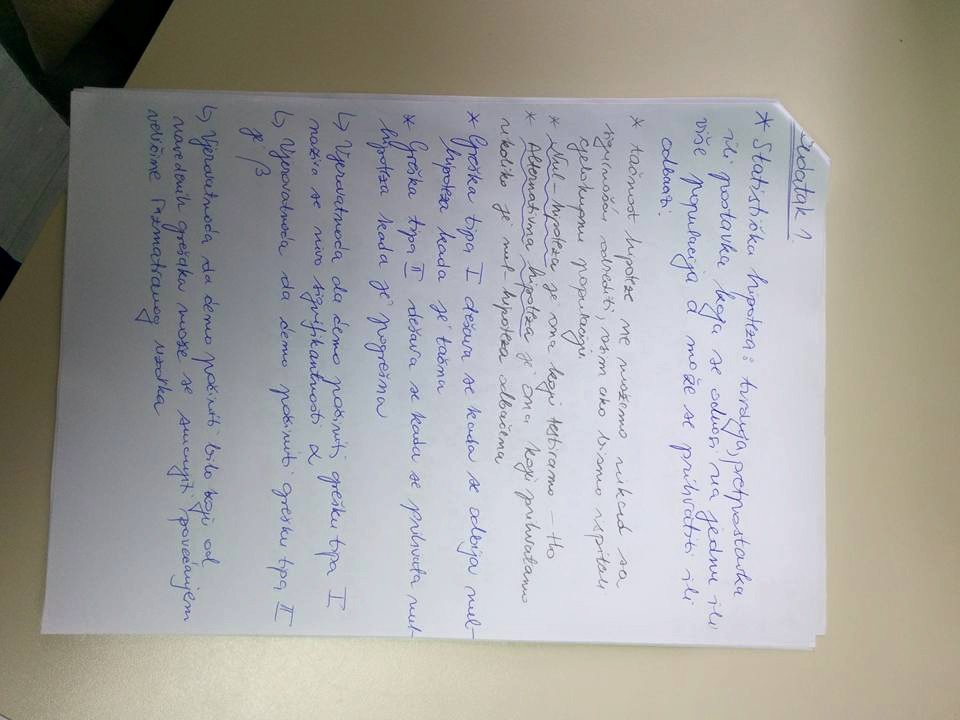 Dodatak 1.
* Statistička hipoteza: tvrdnja, pretpostavka
ili postavka koja se odnosi na jednu ili
više populacija a može se prihvatiti ili
odbaciti
* tačnost hipoteze ne možemo nikad sa
sigurnošću odrediti, osim ako bismo ispitali
cjelokupnu populaciju
* Nul-hipoteza je ona koju testiramo - Ho
* Alternativna hipoteza je ona koju prihvatamo
ukoliko je nul-hipoteza odbačena
* Greška tipa I dešava se kada se odbija nul-
hipoteza kada je tačna
* Greška tipa II dešava se kada se prihvata nul-
hipoteza kada je pogrešna
↳ Vjerovatnoća da ćemo počiniti grešku tipa I
naziva se nivo signifikantnosti α
↳ Vjerovatnoća da ćemo počiniti grešku tipa II
je β
↳ Vjerovatnoća da ćemo počiniti bilo koju od
navedenih grešaka može se smanjiti povećanjem
veličine razmatranog uzorka